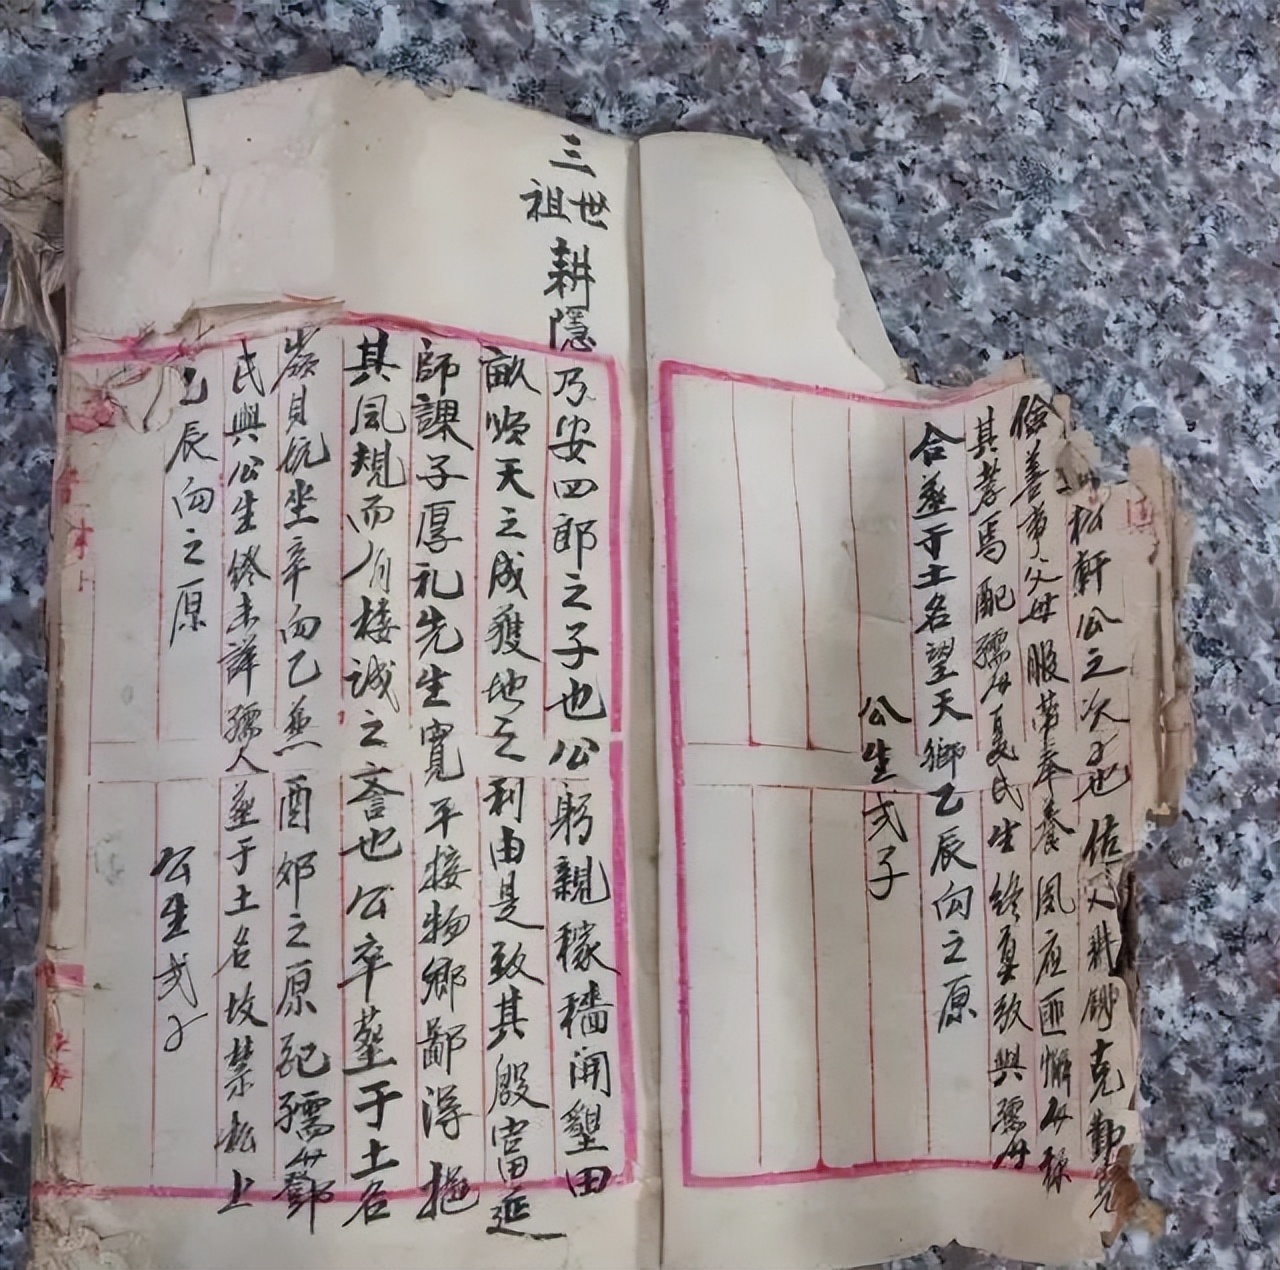 松軒公之次子也佐人耕鋤克勤克
儉善事父母服勞奉養夙夜匪懈母稱
其孝焉配孺人夏氏生終莫攷與孺人
合塟于土名望天鄉乙辰向之原
公生弍子
三世祖耕隱乃安四郎之子也公躬親稼穡開墾田
畝順天之成獲地之利由是致其殷富延
師課子厚礼先生寬平接物鄉鄙得
其風規而有接誠之斎也公卒塟于土名
嶺貝坑坐辛向乙兼酉卯之原配孺人鄧
氏與公生終未詳孺人塟于土名坟禁松上
乙辰向之原
公生弍子